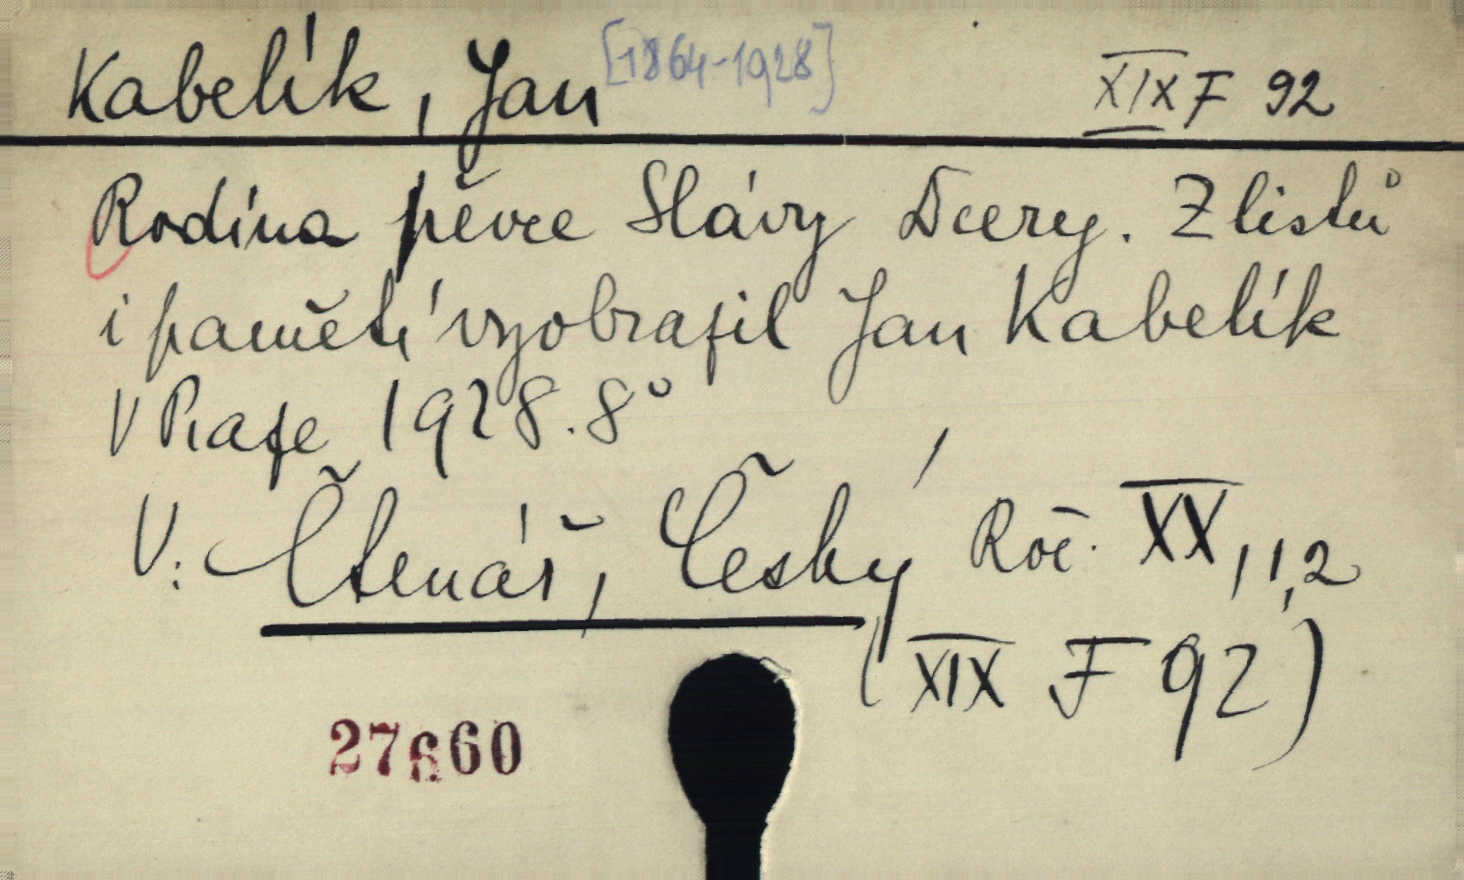 Kabelík, Jan [1864-1928] XIX F 92
Rodina pěvce Slávy Dcery. Z listů
i pamětí vyobrazil Jan Kabelík
V Praze 1928. 8°
V: Čtenář, Český Roč. XX, 1,2
(XIX F 92)
27660